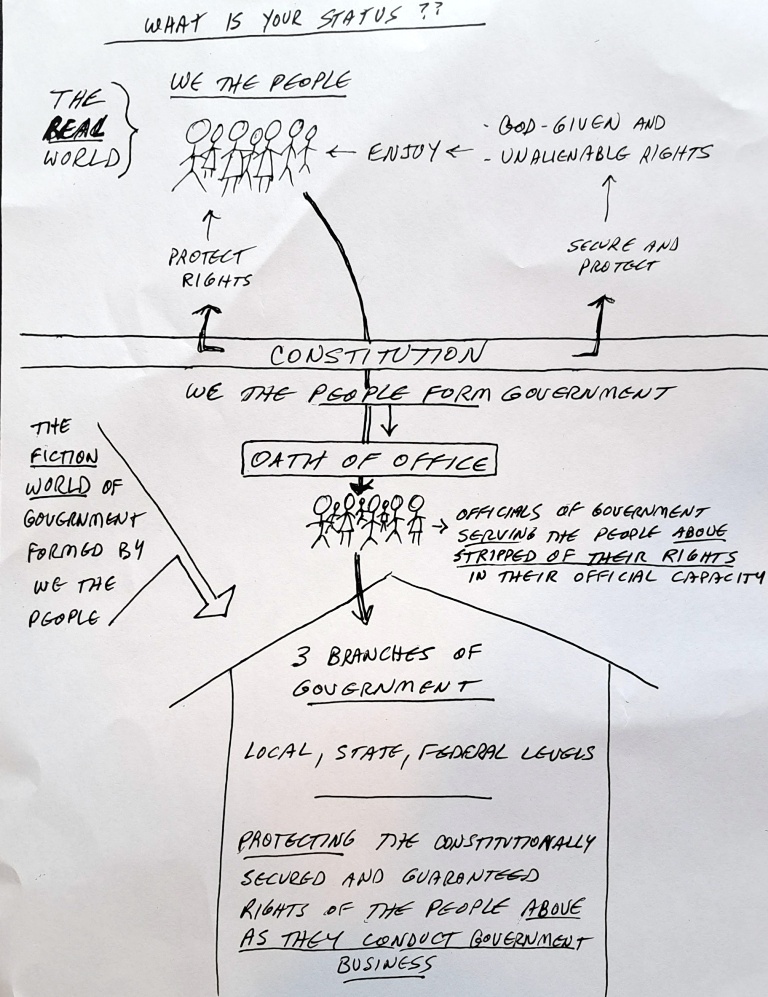 WHAT IS YOUR STATUS ??
WE THE PEOPLE
THE
REAL
WORLD
ENJOY
- GOD-GIVEN AND
- UNALIENABLE RIGHTS
PROTECT
RIGHTS
SECURE AND
PROTECT
CONSTITUTION
WE THE PEOPLE FORM GOVERNMENT
OATH OF OFFICE
THE
FICTION
WORLD OF
GOVERNMENT
FORMED BY
WE THE
PEOPLE
OFFICIALS OF GOVERNMENT
SERVING THE PEOPLE ABOVE
STRIPPED OF THEIR RIGHTS
IN THEIR OFFICIAL CAPACITY
3 BRANCHES OF
GOVERNMENT
LOCAL, STATE, FEDERAL LEVELS
PROTECTING THE CONSTITUTIONALLY
SECURED AND GUARANTEED
RIGHTS OF THE PEOPLE ABOVE
AS THEY CONDUCT GOVERNMENT
BUSINESS